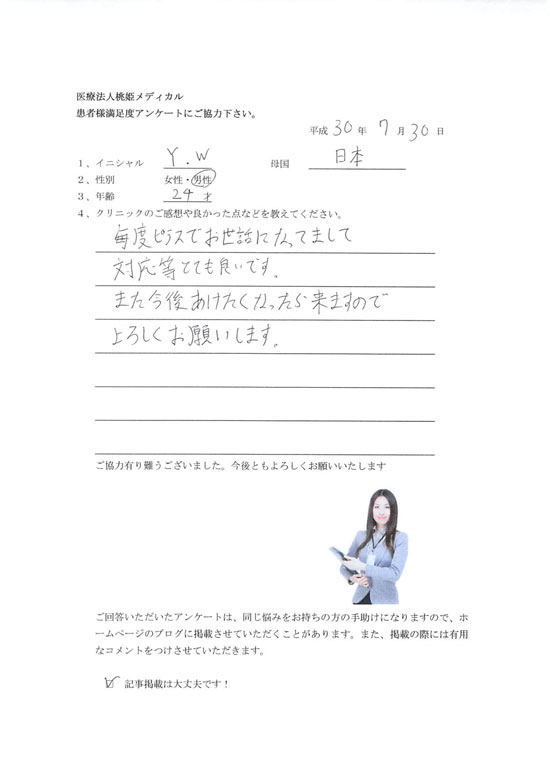 医療法人桃姫メディカル
患者様満足度アンケートにご協力下さい。
平成 30 年 7 月 30 日
1、イニシャル Y.W 母国 日本
2、性別 女性・男性
3、年齢 24 才
4、クリニックのご感想や良かった点などを教えてください。
毎度ピアスでお世話になってまして
対応等とても良いです。
また今後あけたくなったら来ますので
よろしくお願いします。
ご協力有り難うございました。今後ともよろしくお願いいたします
ご回答いただいたアンケートは、同じ悩みをお持ちの方の手助けになりますので、ホ
ームページのブログに掲載させていただくことがあります。また、掲載の際には有用
なコメントをつけさせていただきます。
☑ 記事掲載は大丈夫です！